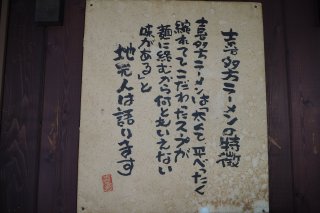 喜多方ラーメンの特徴
喜多方ラーメンは「太くて平べったく
縮れててこだわったスープが
麺に絡むから何ともいえない
味がある」と
地元人は語ります